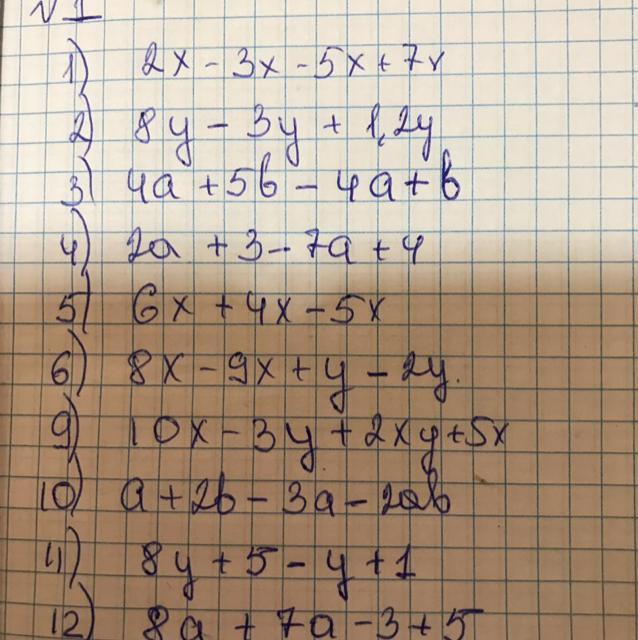 № 1
1) 2x - 3x - 5x + 7x
2) 8y - 3y + 1,2y
3) 4a + 5b - 4a + b
4) 2a + 3 - 7a + 4
5) 6x + 4x - 5x
6) 8x - 9x + y - 2y.
9) 10x - 3y + 2xy + 5x
10) a + 2b - 3a - 2ab
11) 8y + 5 - y + 1
12) 8a + 7a - 3 + 5